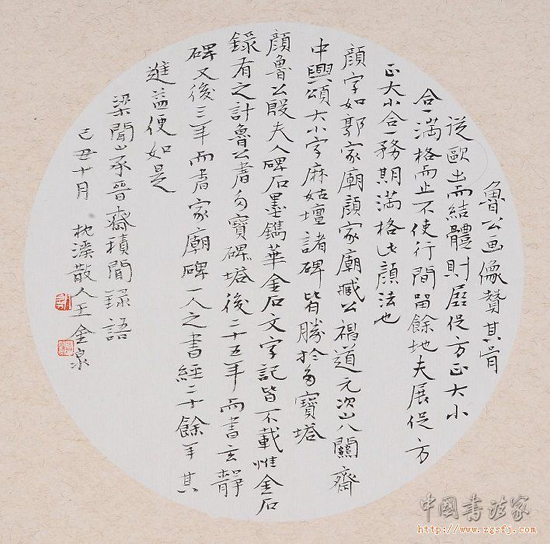 魯公画像贊其骨
從歐出而結體則展促方正大小
合滿格而止不使行間留餘地夫展促方
正大小合一務期滿格此顏法也
顏字如郭家廟顏家廟臧公褐道元次山八關齋
中興頌大小字麻姑壇諸碑皆勝於多寶塔
顏魯公殷夫人碑石墨鐫華金石文字記皆不載惟金石
錄有之計魯公書多寶碑塔後二十五年而書玄靜
碑又後三年而書家廟碑一人之書經二十餘年其
進益便如是
梁聞山承晉齋積聞錄語
己丑十月 抱濮散人王金泉
中國書法家
http://www.zgsfj.com